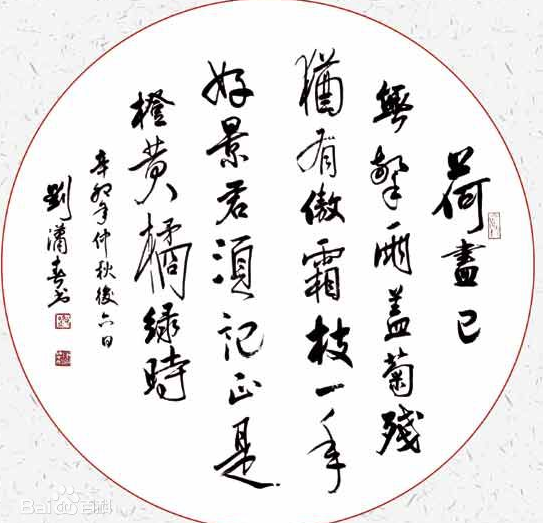 荷盡已
無擎雨盖菊殘
猶有傲霜枝一年
好景君須記正是
橙黄橘绿時
辛卯年仲秋後六日
劉瀟春书
Bai百科